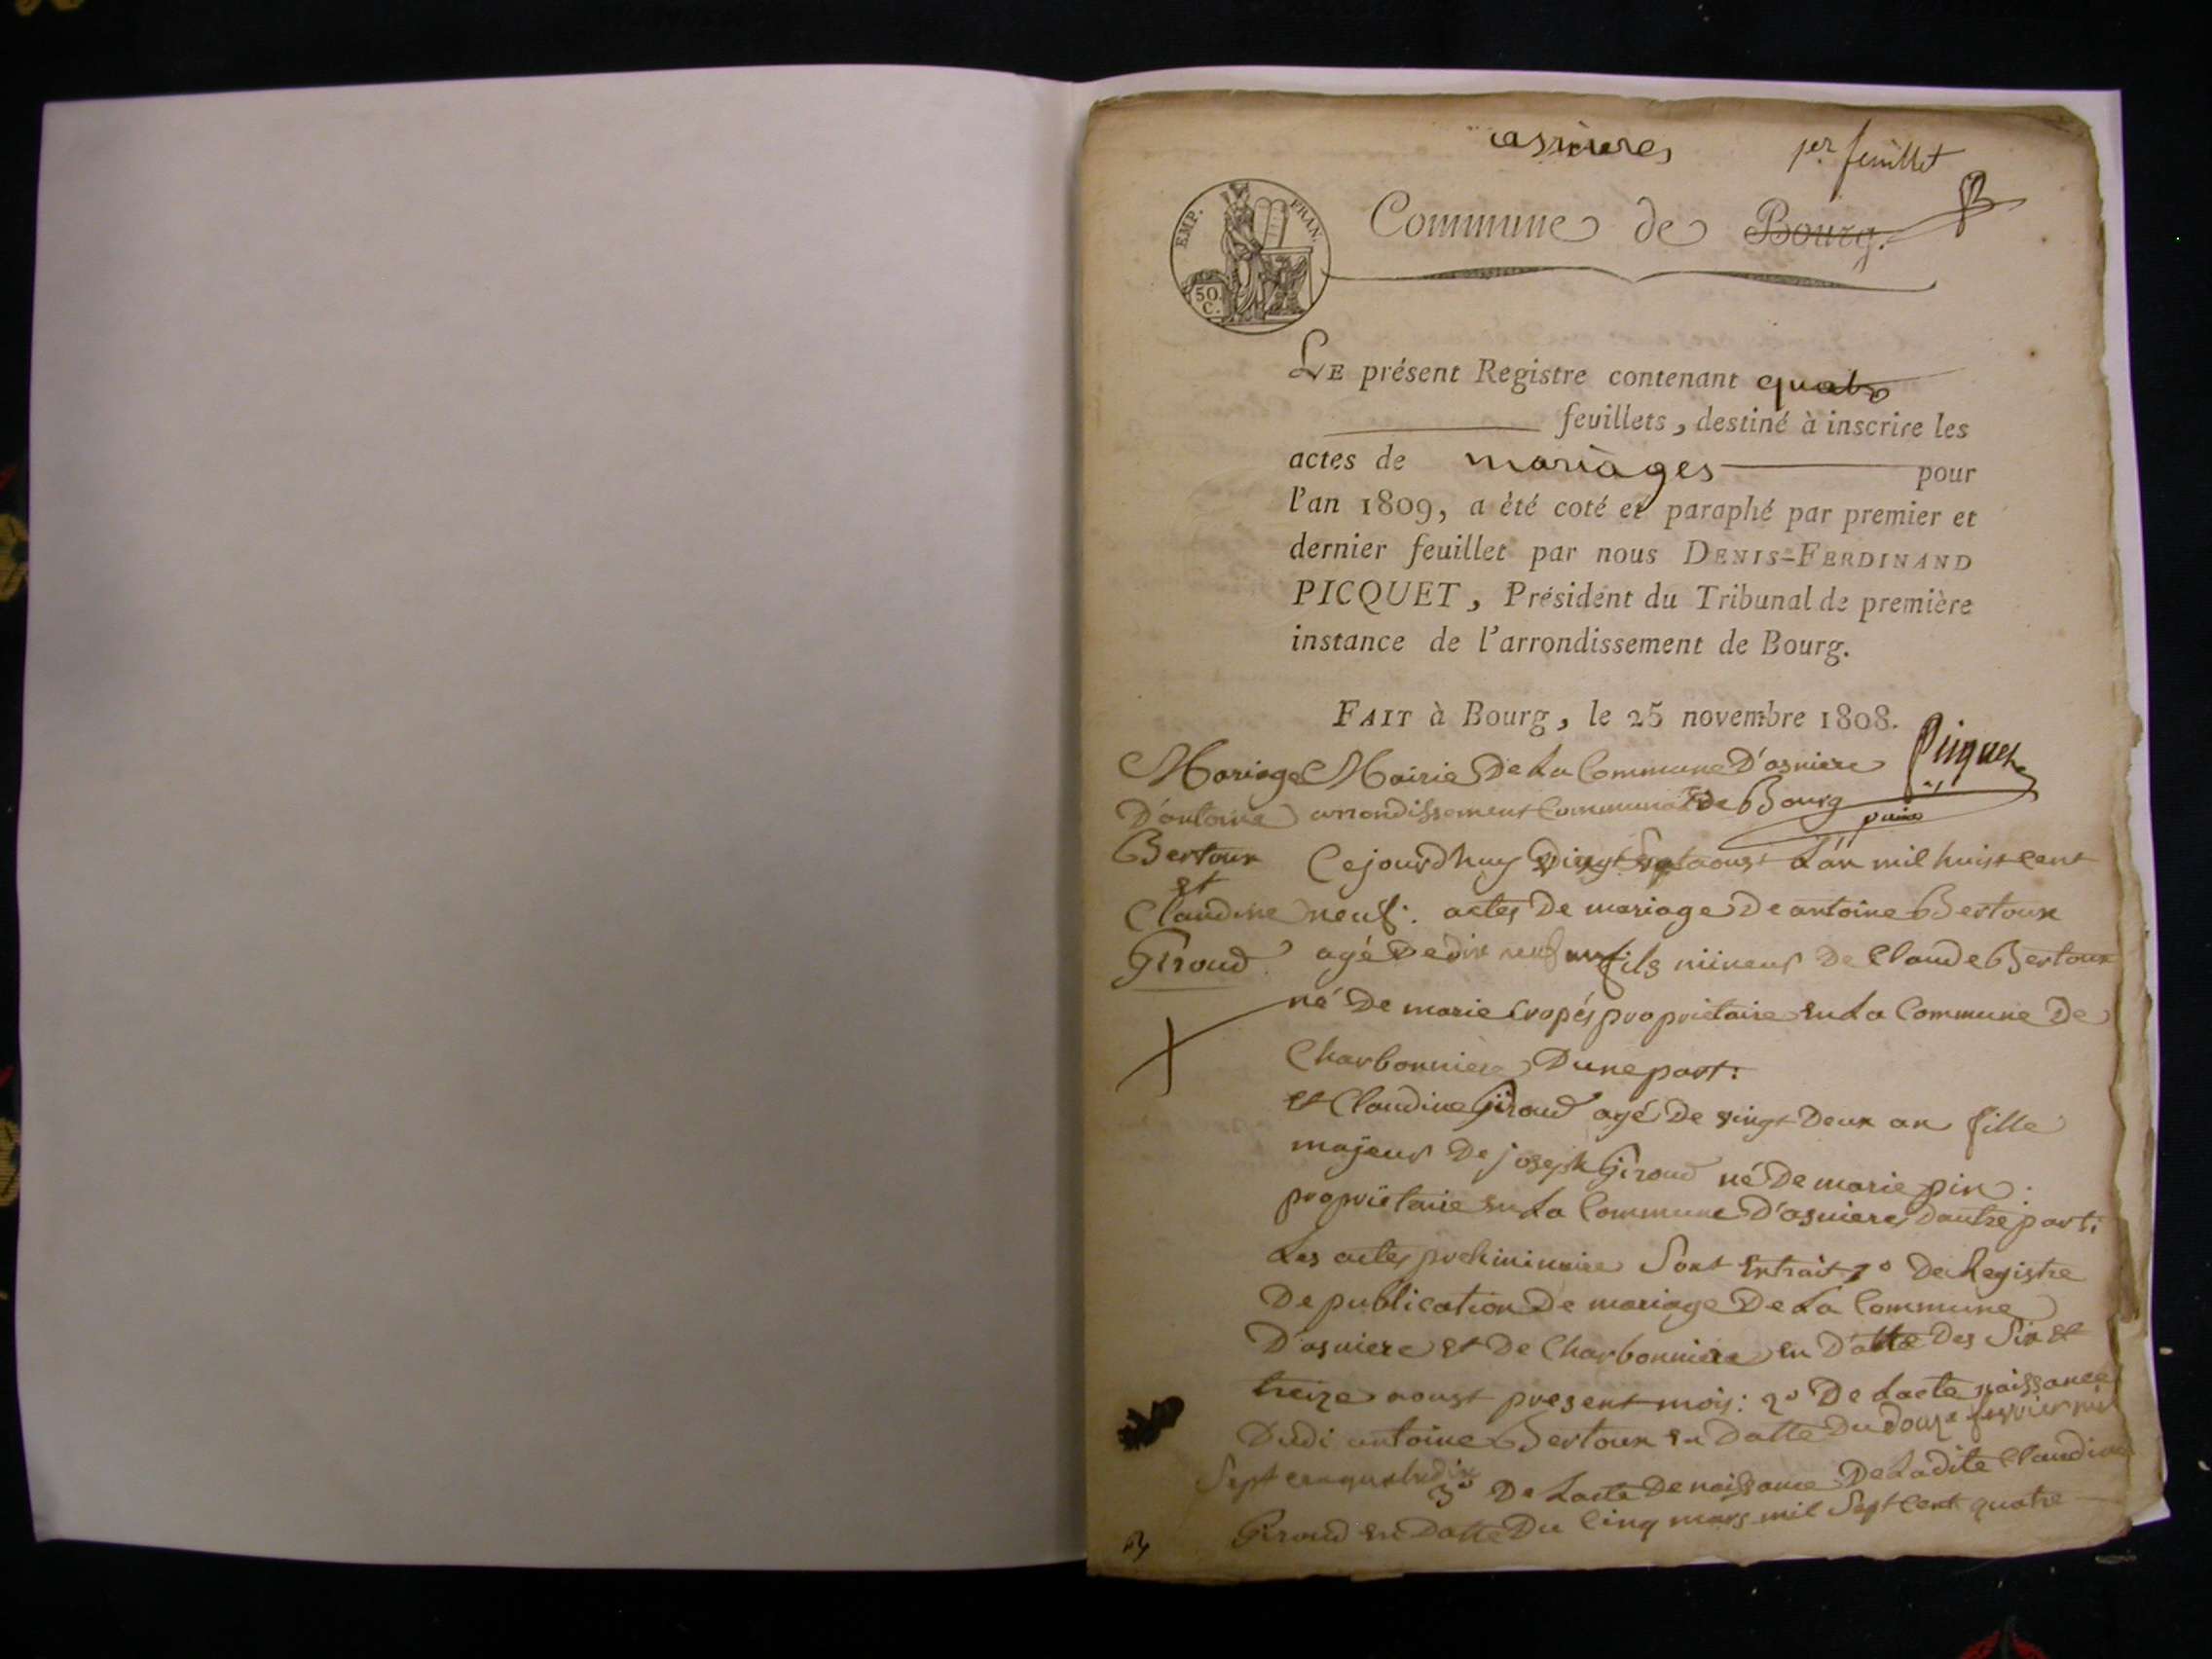 asnieres 1er feuillet
EMP. FRAN.
50. C.
Commune de Bourg.
LE présent Registre contenant quatre
feuillets, destiné à inscrire les
actes de mariages pour
l'an 1809, a été coté et paraphé par premier et
dernier feuillet par nous DENIS-FERDINAND
PICQUET, Président du Tribunal de première
instance de l'arrondissement de Bourg.
FAIT à Bourg, le 25 novembre 1808.
Picquet
Mariage
D'antoine
Bertoux
et
Claudine
Giroud
Mairie De La Commune D'asniere
arrondissement Communal de Bourg
Cejourdhuy Vingt Sept aoust L'an mil huit cent
neuf: actes De mariage De antoine Bertoux
agé De dix neuf an fils mineur De Claude Bertoux
né De marie propriétaire en La Commune De
Charboniere D'une part:
et Claudine Giroud agé De vingt Deux an fille
majeur De joseph Giroud né De marie pin:
propriétaire en La Commune D'asnieres Dautre part:
Les actes preliminaire Sont Extrait 1o De Registre
De publication De mariage De La Commune
D'asniere et De Charbonniere en Datte Des Six et
treize aoust present mois: 2o De Lacte naissance
Dudi antoine Bertoux en Datte Du douze fevrier mil
Sept cent 3o De Lacte De naissance De Ladite Claudine
Giroud en Datte Du Cinq mars mil Sept Cent quatre